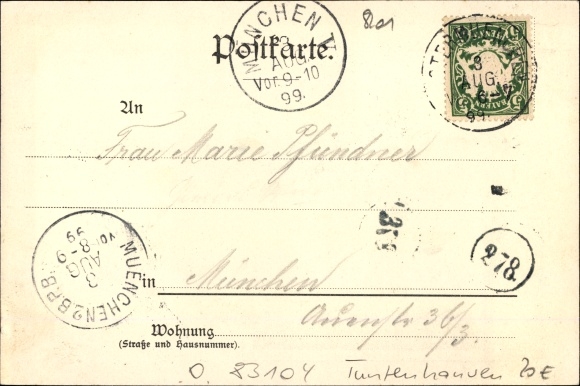 201
Postkarte.
MÜNCHEN II
3
AUG.
Vor. 9-10
99.
8
AUG
6-7
99.
BAYERN
An
Frau Marie Pfündner
278
MUENCHEN 2 B.P.B.
3
AUG
Vor. 8-9
99
in München
Auenstr 36/3
Wohnung
(Straße und Hausnummer).
O. 83104 Tuntenhausen 20E